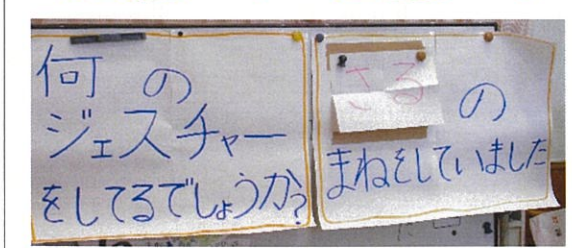 何の
ジェスチャー
をしてるでしょうか?
さるの
まねをしていました